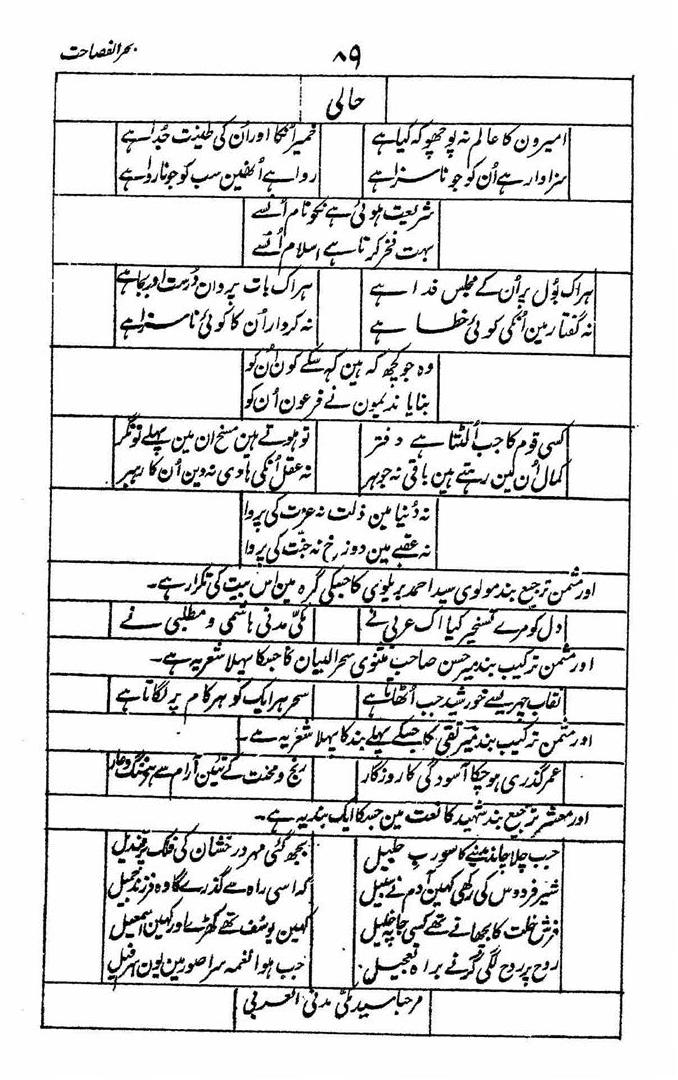 بحر الفصاحت
۸۹
حالی
امیرون کا عالم نہ پوچھو کہ کیا ہے خمیر انکا اور اُن کی طینت جُدا ہے
سزاوار ہے اُن کو جو ناسزا ہے روا ہے اُنھین سب کو جو ناروا ہے
شریعت ہوئی ہے نکو نام اُنسے
بہت فخر کرتا ہے اسلام اُنسے
ہر اک بول پر اُن کے مجلس فدا ہے ہر اک بات پر وان درست اور بجا ہے
نہ گفتار مین اُنکی کوئی خطا ہے نہ کردار اُن کا کوئی ناسزا ہے
وہ جو کچھ کہ ہین کہہ سکے کون اُن کو
بنایا ندیمون نے فرعون اُن کو
کسی قوم کا جب اُلٹتا ہے دفتر تو ہوتے ہین مسخ ان مین پہلے تونگر
کمال اُن مین رہتے ہین باقی نہ جوہر نہ عقل اُنکی ہادی نہ دین اُن کا رہبر
نہ دُنیا مین ذلت نہ عزت کی پروا
نہ عقبے مین دوزخ نہ جنّت کی پروا
اور مثمن ترجیع بند مولوی سید احمد بریلوی کا جسکی گرہ مین اس بیت کی تکرار ہے۔
دل کو مرے تسخیر کیا اک عربی نے مکّی مدنی ہاشمی و مطلبی نے
اور مثمن ترکیب بند میر حسن صاحب مثنوی سحر البیان کا جسکا پہلا شعر یہ ہے۔
نقاب چہر یسے خورشید جب اُٹھاتا ہے سحر ہر ایک کو ہر کام پر لگاتا ہے
اور مثمن ترکیب بند میر تقی کا جسکے پہلے بند کا پہلا شعر یہ ہے۔
عمر گذری ہو چکا آسودگی کا روزگار رنج و محنت کے تئین آرام سے ہے ننگ و عار
اور معشر ترجیع بند شہید کا نعت مین جسکا ایک بند یہ ہے۔
جب چلا چاند مدینے کا سوے رب جلیل بجھ گئی مہر درخشان کی فلک پر قندیل
شیر فردوس کی رکھی کہین آدم نے سبیل کہ اسی راہ سے گذرے گا وہ فرزند جمیل
فرش خلت کا بچھاتے تھے کسی جا پہ خلیل کہین یوسف تھے کھڑے اور کہین اسمعیل
روح پر روح لگی گرنے براہ تعجیل جب ہوا نغمہ سرا صور مین یون اسرافیل
مرحبا سید مکّی مدنی العربی